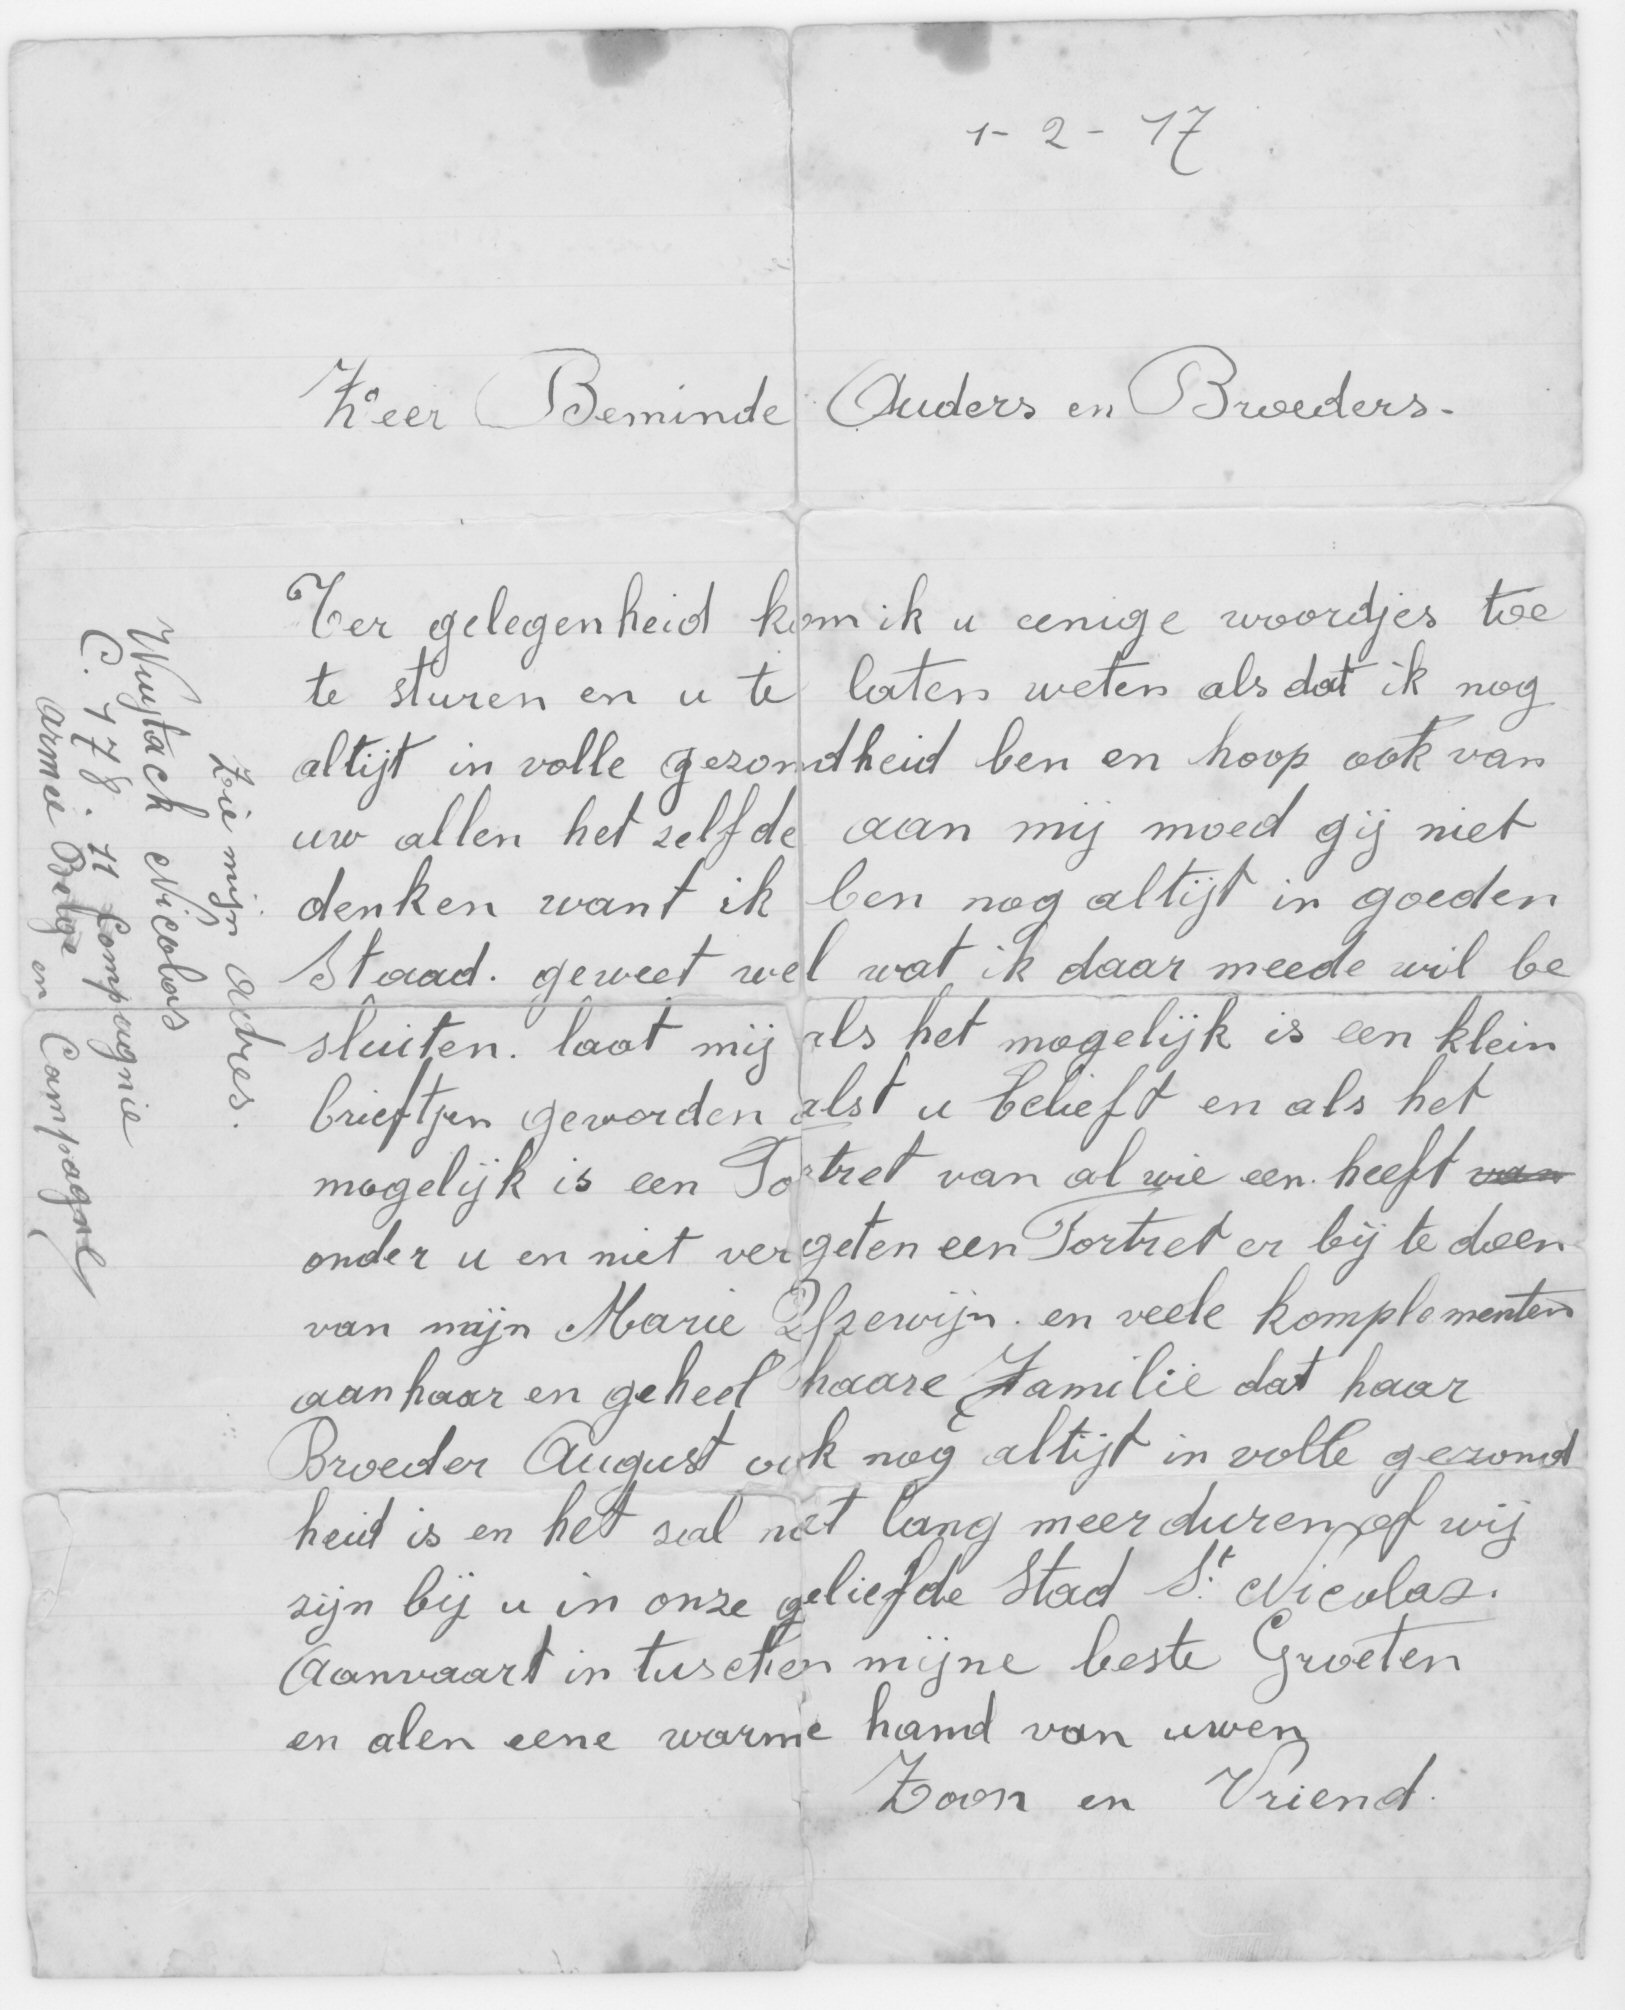 1 - 2 - 17
Zeer Beminde Ouders en Broeders.
Ter gelegenheid kom ik u eenige woordjes toe
te sturen en u te laten weten als dat ik nog
altijt in volle gezondheid ben en hoop ook van
uw allen het zelfde aan mij moed gij niet
denken want ik ben nog altijt in goeden
Staad. geweet wel wat ik daar meede wil be
sluiten. laat mij als het mogelijk is een klein
brieftjen geworden alst u belieft en als het
mogelijk is een Portret van al wie een heeft van
onder u en niet vergeten een Portret er bij te doen
van mijn Marie en veele komplementen
aan haar en geheel haare Familie dat haar
Broeder August ook nog altijt in volle gezond
heid is en het zal niet lang meer duren of wij
zijn bij u in onze geliefde Stad St. Nicolas.
Aanvaart in tuschen mijne beste Groeten
en alen eene warme hand van uwen
Zoon en Vriend.
Zie mijn Adres.
Wuytack Nicolas
C. 178. 11 Compagnie
Armée Belge en Campagne